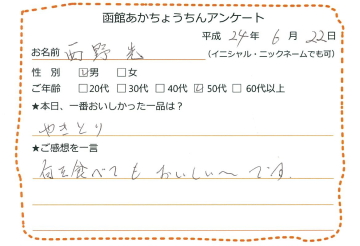 函館あかちょうちんアンケート
平成 24年 6月 22日
お名前 西野 光 (イニシャル・ニックネームでも可)
性 別 ☑男 □女
ご年齢 □20代 □30代 □40代 ☑50代 □60代以上
★本日、一番おいしかった一品は？
やきとり
★ご感想を一言
何を食べても おいしい〜です。